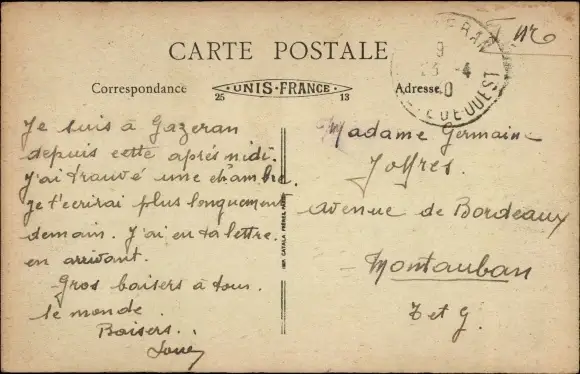 CARTE POSTALE
Correspondance
UNIS-FRANCE
25 13
Adresse
Je suis à Gazeran
depuis cette après midi.
J'ai trouvé une chambre.
Je t'ecrirai plus longuement
demain. J'ai eu ta lettre.
en arrivant.
Gros baisers à tous.
le monde.
Baisers..
IMP. CATALA FRÈRES, PARIS
Madame Germaine
Joffres.
avenue de Bordeaux
Montauban
T et G.